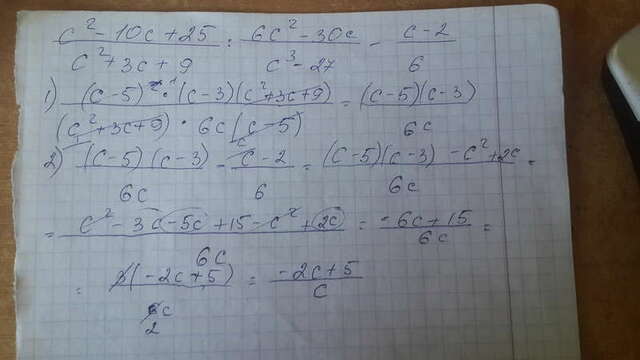 (c² - 10c + 25)/(c² + 3c + 9) : (6c² - 30c)/(c³ - 27) - (c - 2)/6
1) ((c-5)²·¹(c-3)(c²+3c+9))/((c²+3c+9) · 6c(c-5)) = ((c-5)(c-3))/6c
2) ((c-5)(c-3))/6c - (c-2)/6 = ((c-5)(c-3) - c² + 2c)/6c =
= (c² - 3c - 5c + 15 - c² + 2c)/6c = (-6c + 15)/6c =
= 3(-2c + 5)/6c 2 = (-2c + 5)/c